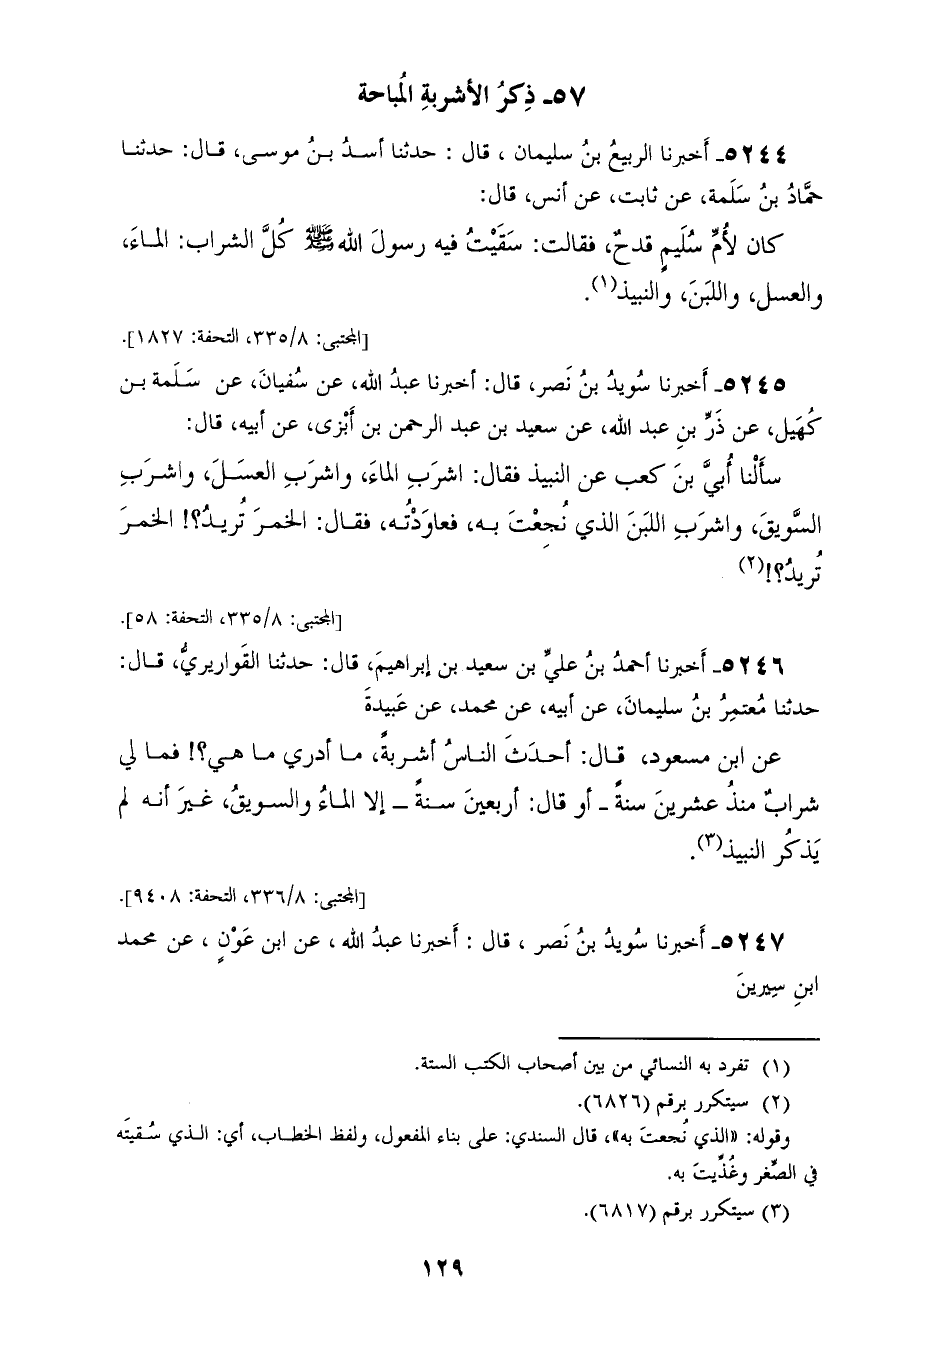 ٥٧ـ ذِكرُ الأشربةِ المُباحة
٥٢٤٤ـ أَخبرنا الربيعُ بنُ سليمان ، قال : حدثنا أسدُ بنُ موسى، قال: حدثنا
حمَّادُ بنُ سَلَمة، عن ثابت، عن أنس، قال:
كان لأُمِّ سُلَيمٍ قدحٌ، فقالت: سَقَيْتُ فيه رسولَ الله ﷺ كُلَّ الشراب: الماءَ،
والعسل، واللبَنَ، والنبيذ(١).
[المجتبى: ٣٣٥/٨، التحفة: ١٨٢٧].
٥٢٤٥ـ أَخبرنا سُويدُ بنُ نَصر، قال: أخبرنا عبدُ الله، عن سُفيانَ، عن سَلَمة بن
كُهَيل، عن ذَرِّ بنِ عبد الله، عن سعيد بن عبد الرحمن بن أَبْزى، عن أبيه، قال:
سأَلْنا أُبيَّ بنَ كعب عن النبيذ فقال: اشرَبِ الماءَ، واشرَبِ العسَلَ، واشرَبِ
السَّويقَ، واشرَبِ اللبَنَ الذي نُجِعْتَ به، فعاوَدْتُه، فقال: الخمرَ تُريدُ؟! الخمرَ
تُريدُ؟!(٢)
[المجتبى: ٣٣٥/٨، التحفة: ٥٨].
٥٢٤٦ـ أَخبرنا أحمدُ بنُ عليِّ بن سعيد بن إبراهيمَ، قال: حدثنا القَواريريُّ، قال:
حدثنا مُعتمِرُ بنُ سليمانَ، عن أبيه، عن محمد، عن عَبيدةَ
عن ابن مسعود، قال: أحدَثَ الناسُ أشربةً، ما أدري ما هي؟! فما لي
شرابٌ منذُ عشرينَ سنةً ـ أو قال: أربعينَ سنةً ـ إلا الماءُ والسويقُ، غيرَ أنه لم
يَذكُر النبيذ(٣).
[المجتبى: ٣٣٦/٨، التحفة: ٩٤٠٨].
٥٢٤٧ـ أَخبرنا سُويدُ بنُ نَصر ، قال : أَخبرنا عبدُ الله ، عن ابن عَوْنٍ ، عن محمد
ابنِ سِيرينَ
(١) تفرد به النسائي من بين أصحاب الكتب الستة.
(٢) سيتكرر برقم (٦٨٢٦).
وقوله: «الذي نُجعتَ به»، قال السندي: على بناء المفعول، ولفظ الخطاب، أي: الذي سُقيتَه
في الصِّغر وغُذِّيتَ به.
(٣) سيتكرر برقم (٦٨١٧).
١٢٩